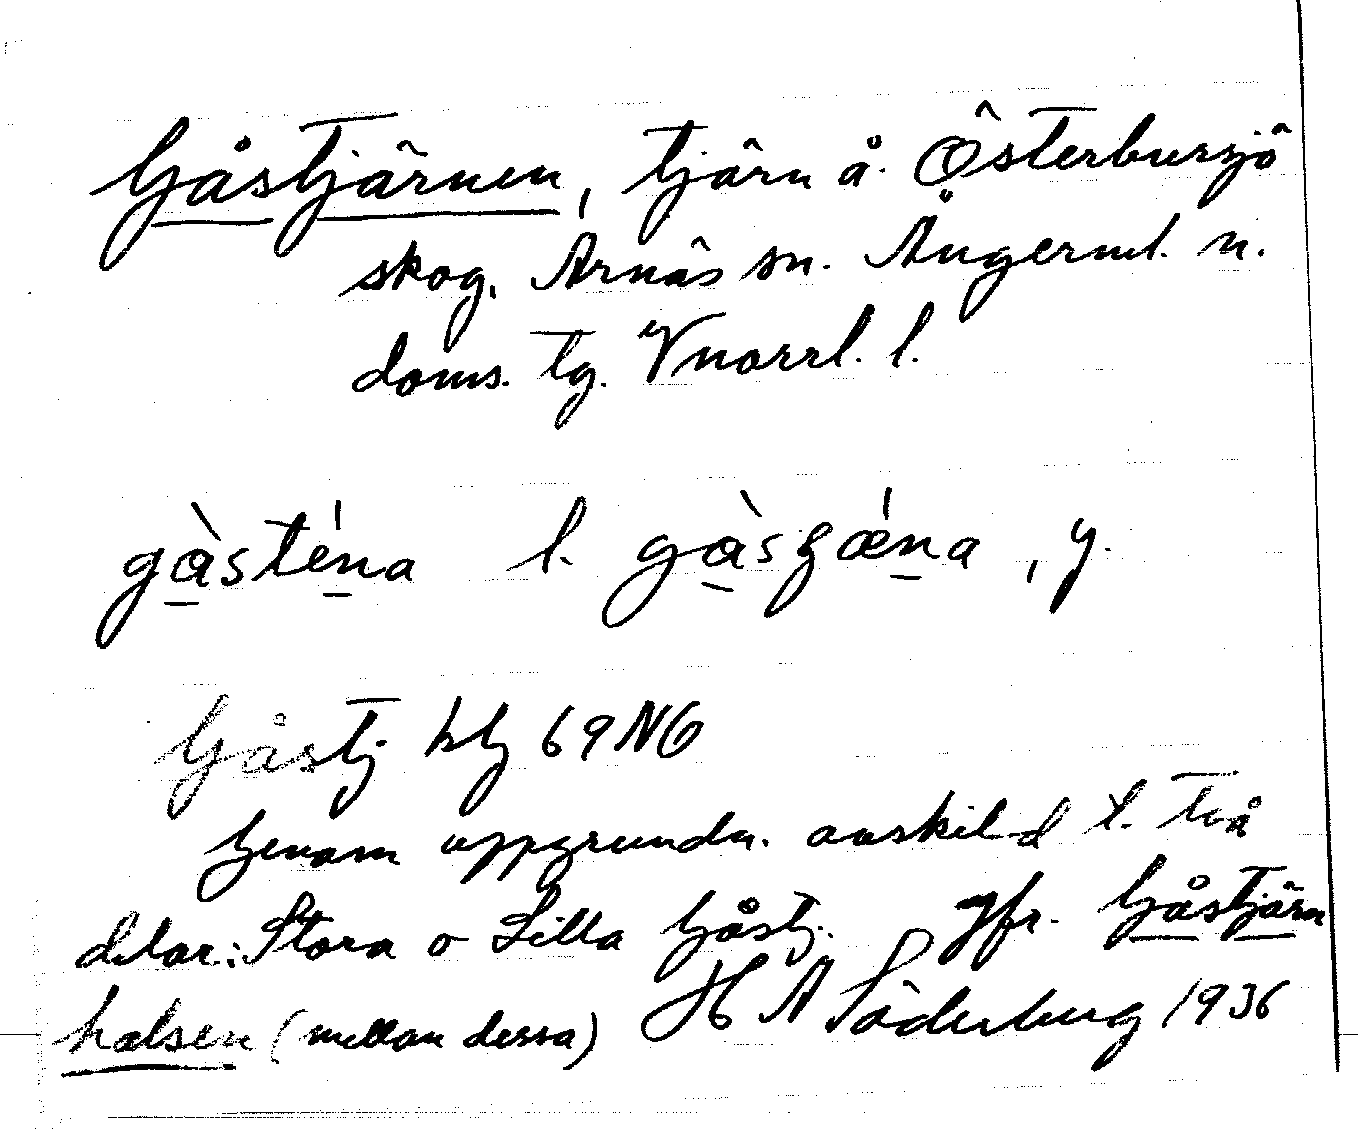 Gåstjärnen, tjärn å. Österbursjö
skog, Arnäs sn. Ångerml. n.
doms. tg. Vnorrl. l.
gàsténa l. gàsʒǽna, y.
Gåstj htj 69 NG
Genom uppgrundn. avskild t. två
delar: Stora o Lilla Gåstj. Jfr. Gåstjärn
halsen (mellan dessa) H A Söderberg 1936